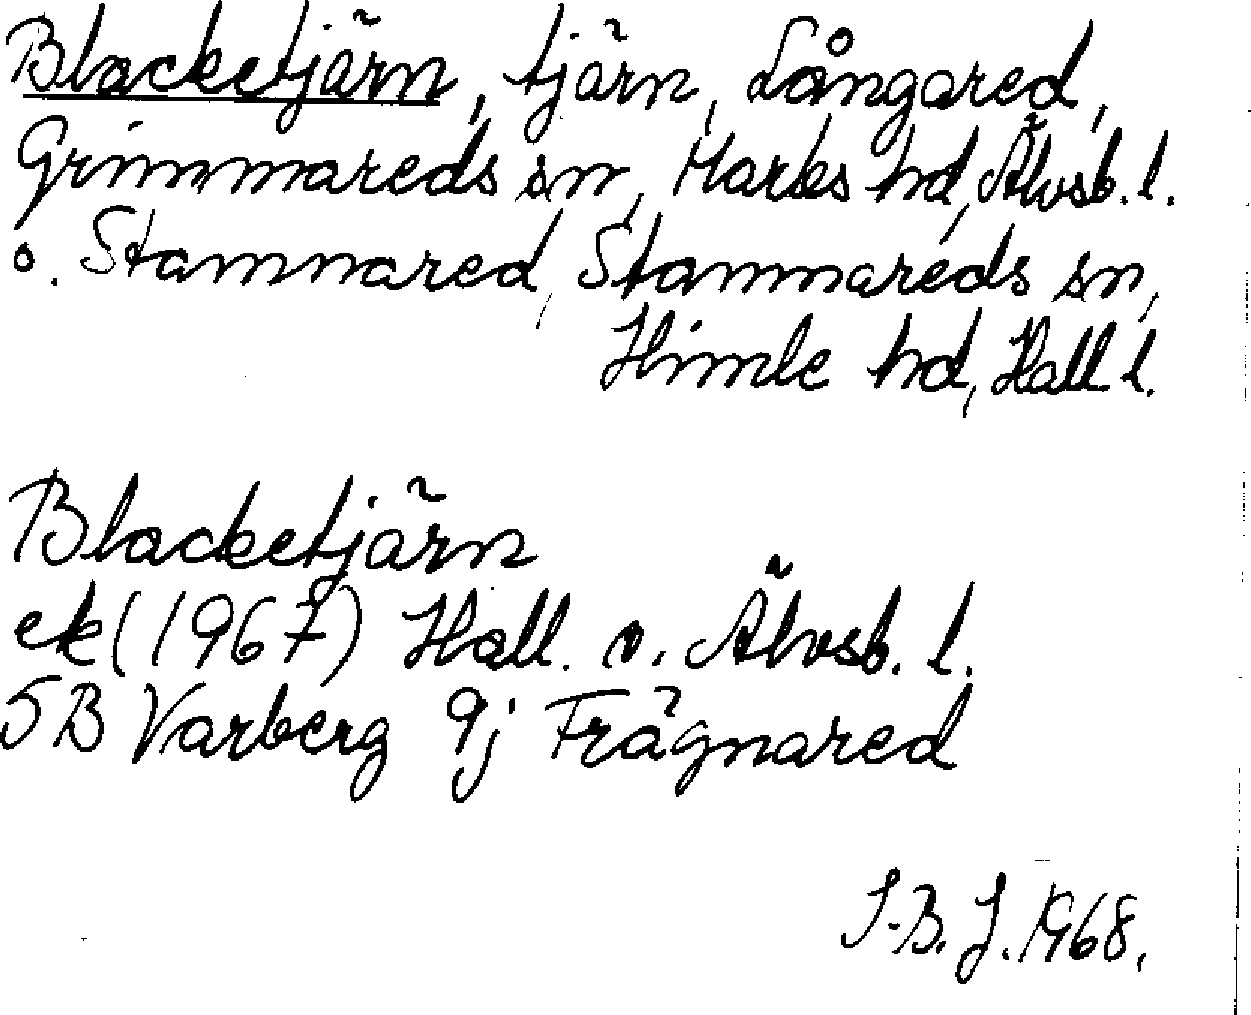 Blacketjärn, tjärn, Långared,
Grimmareds sn, Marks hd, Älvsb. l.
o. Stamnared, Stamnareds sn,
Himle hd, Hall l.
Blacketjärn
ek (1967) Hall. o. Älvsb. l.
5B Varberg 9j Frägnared
I.B.J. 1968.